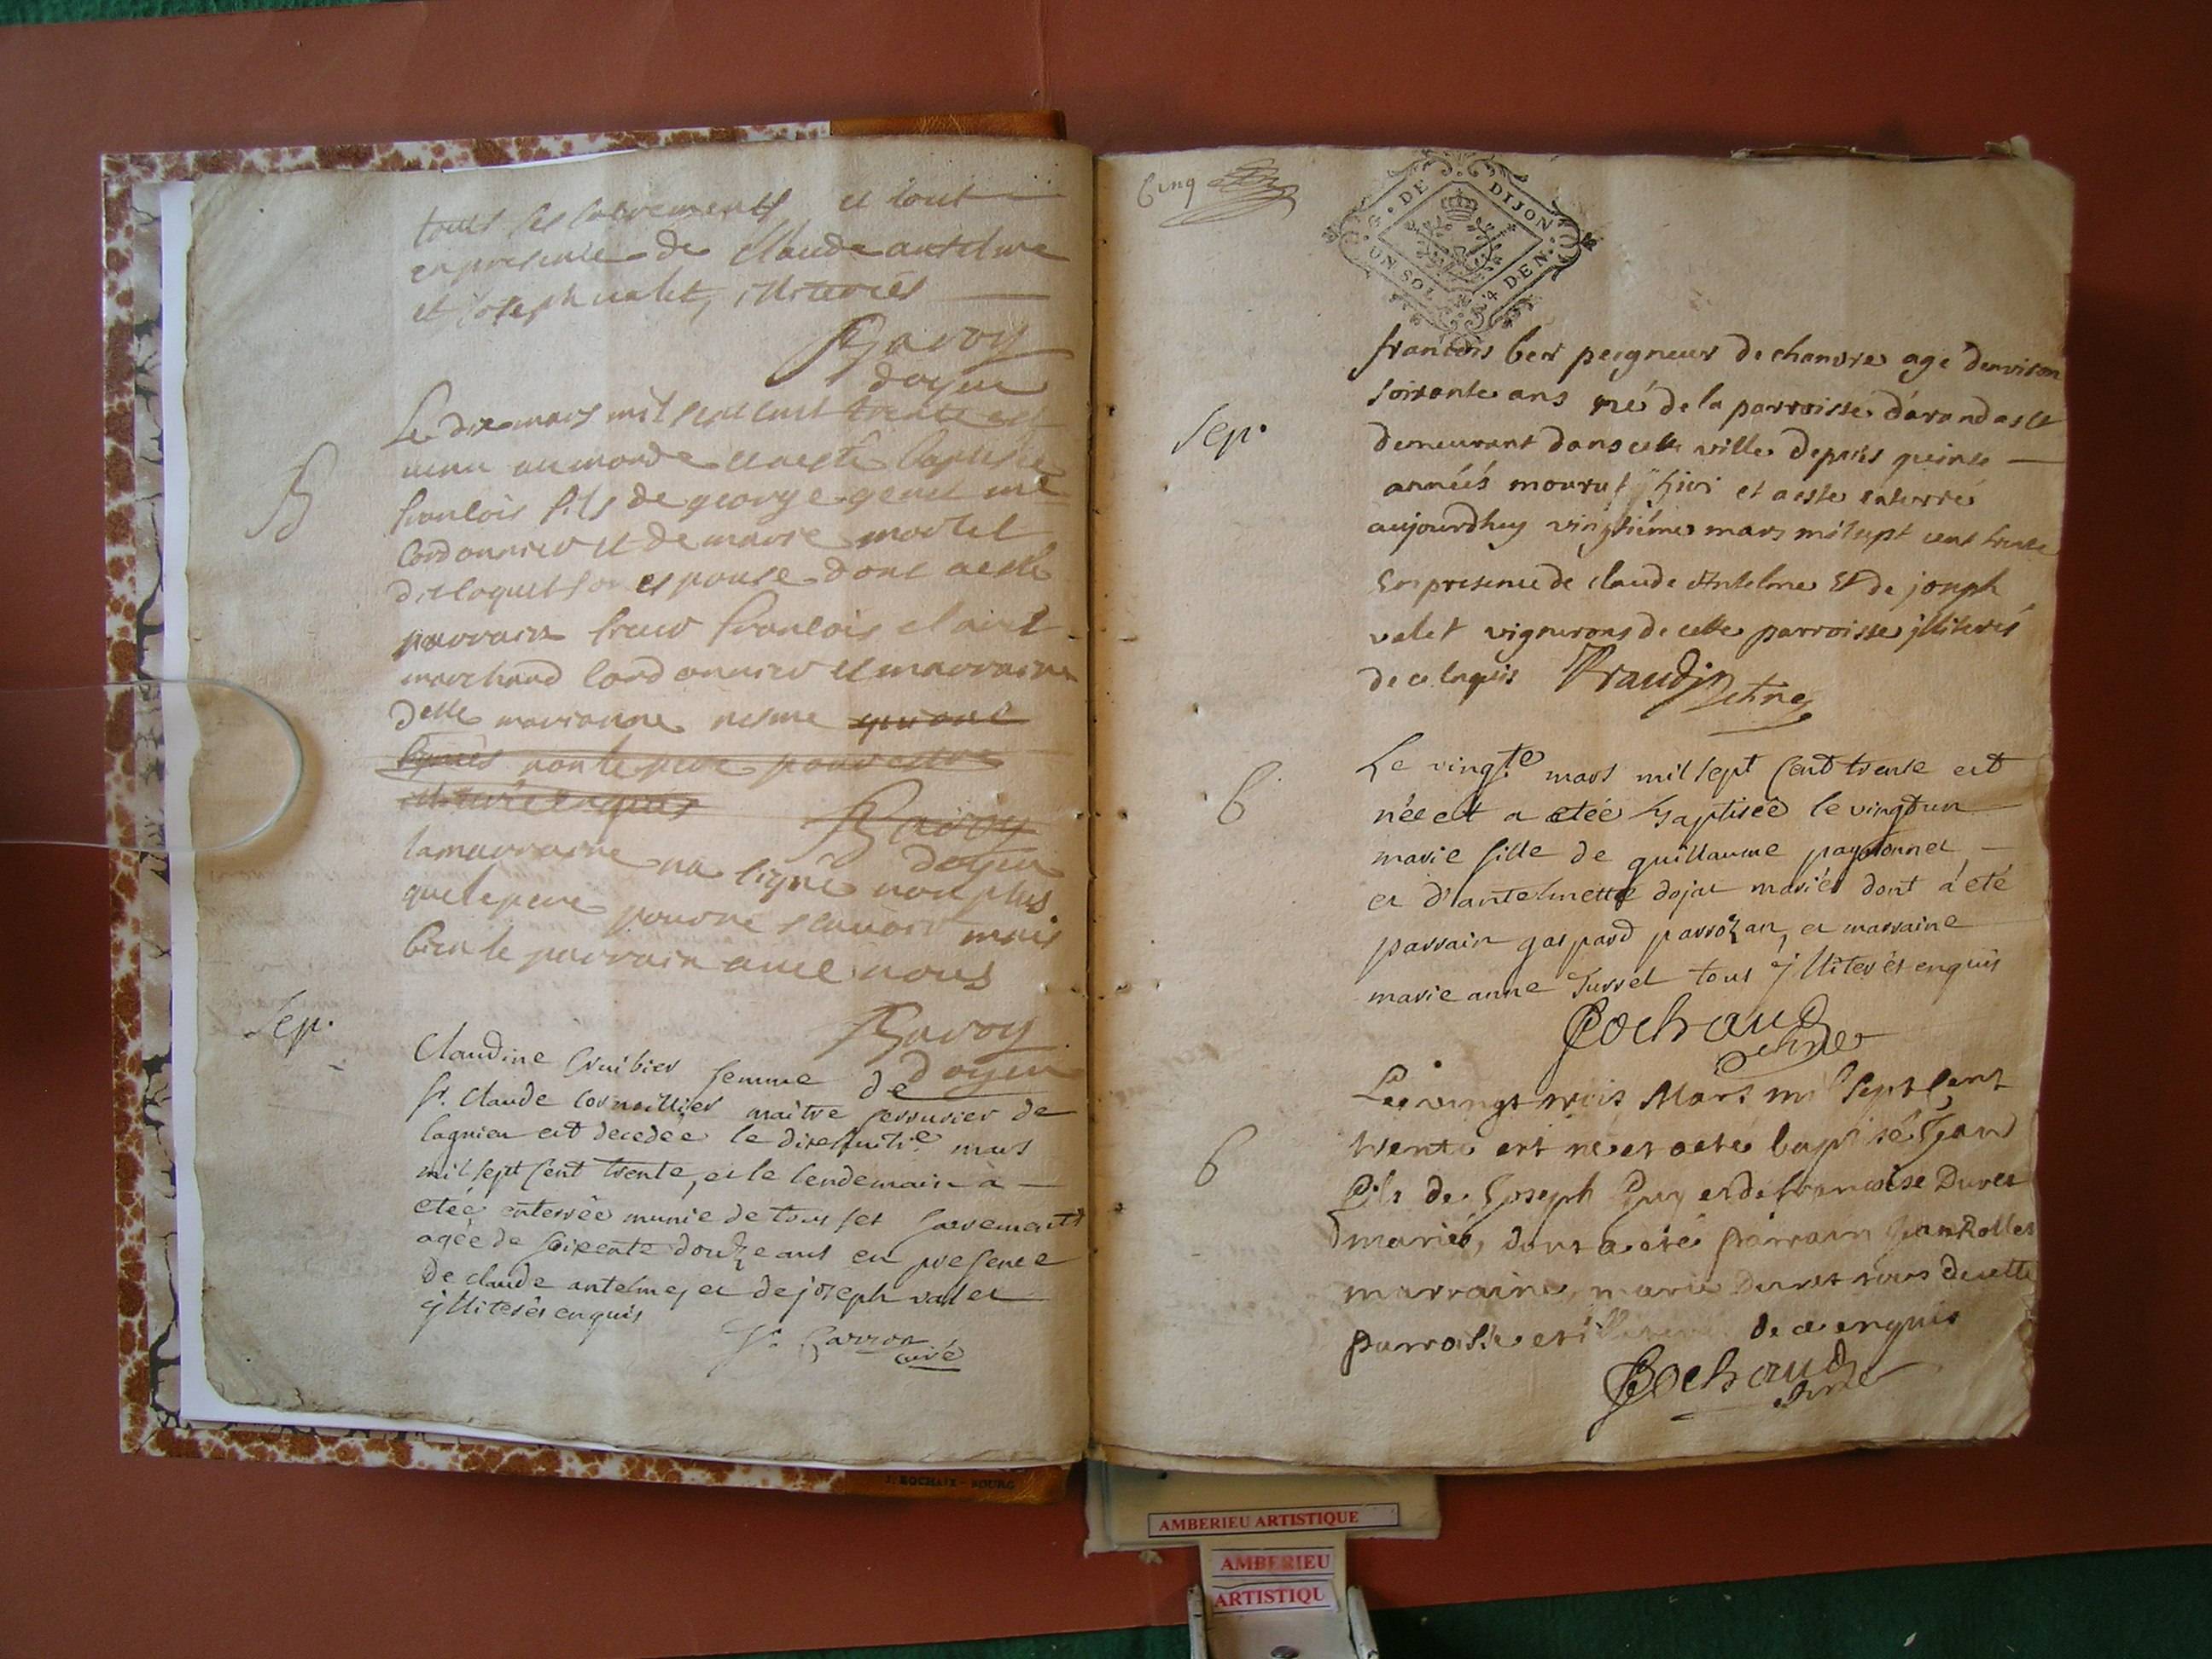 tous ses sacrements et tout
en presence de Claude antelme
et Joseph valet, illiterés
Savoy
doyen
Le dix mars mil sept cent trente est
venu au monde et a esté baptisé
B
francois fils de george genet me
Cordonnier et de marie martel
dit loquet son espouse dont a esté
parrain sieur francois clairet
marchand Cordonnier et marraine
delle marianne nesme qui ont
signés non le pere pour estre
illiteré enquis
Savoy
doyen
la marraine na signé non plus
que le pere pour ne scavoir mais
bien le parrain avec nous
Savoy
doyen
Sep.
Claudine Cruibier femme de
Sr. Claude Cornillier maitre serrurier de
lagnieu est decedée le dixhuite mars
mil sept cent trente, et le lendemain a
etée enterrée munie de tous ses sacrements
agée de soixante douze ans en presence
de claude antelme, et de joseph valet
jlliterés enquis
Carron
curé
Cinq
G. DE DIJON
UN SOL 4 DEN.
francois ber peigneur de chanvre agé denviron
soixante ans né de la parroisse d'arandas et
Sep.
demeurant dans cette ville depuis quinse
années mourut hier et a esté enterré
aujourdhuy vingtiéme mars mil sept cent trente
En presence de claude Antelme Et de joseph
valet vignerons de cette parroisse jlliterés
de ce enquis Traudin
Le vingte mars mil sept cent trente est
née et a etée baptisée le vingt un
B
marie fille de guillaume
et d'antelmette dojat mariés dont a été
parrain gaspard parrozan, et marraine
marie anne Turrel tous jlliterés enquis
Cochaud
Le vingt trois Mars mil Sept Cent
trente est né et a eté baptisé Jean
B
fils de Joseph Guy et de francoise Duret
mariés, dont a eté parrain Jean Rollet
marraine, marie Duret tous de cette
parroisse et illiterés de ce enquis
Cochaud
J. ROCHAIX - BOURG
AMBERIEU ARTISTIQUE
AMBERIEU
ARTISTIQU